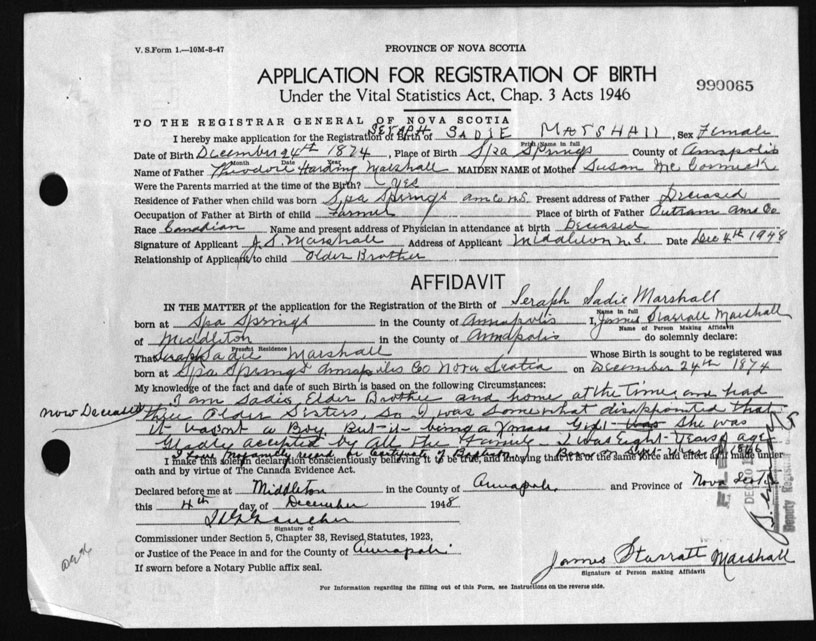 V. S. Form 1.—10M-8-47
PROVINCE OF NOVA SCOTIA
APPLICATION FOR REGISTRATION OF BIRTH
Under the Vital Statistics Act, Chap. 3 Acts 1946
990065
TO THE REGISTRAR GENERAL OF NOVA SCOTIA
I hereby make application for the Registration of Birth of SERAPH SADIE MARSHALL, Sex Female
Print Name in full
Date of Birth December 24th 1874, Place of Birth Spa Springs County of Annapolis
Month Day Year
Name of Father Theodore Harding Marshall MAIDEN NAME of Mother Susan McCormick
Were the Parents married at the time of the Birth? Yes
Residence of Father when child was born Spa Springs Ann Co N.S. Present address of Father Deceased
Occupation of Father at Birth of child Farmer Place of birth of Father Outram Ann Co
Race Canadian Name and present address of Physician in attendance at birth Deceased
Signature of Applicant J. S. Marshall Address of Applicant Middleton N.S. Date Dec 4th 1948
Relationship of Applicant to child Older Brother
AFFIDAVIT
IN THE MATTER of the application for the Registration of the Birth of Seraph Sadie Marshall
Name in full
born at Spa Springs in the County of Annapolis I, James Starratt Marshall
Name of Person Making Affidavit
of Middleton in the County of Annapolis do solemnly declare:
Present Residence
That Seraph Sadie Marshall Whose Birth is sought to be registered was
born at Spa Springs Annapolis Co Nova Scotia on December 24th 1874
My knowledge of the fact and date of such Birth is based on the following Circumstances:
I am Sadies Elder Brother and home at the time and had
now Deceased three Older Sisters, So I was Somewhat disappointed that
it wasont a Boy, But it being a Xmas Gift She was
Gladly accepted by All the Family I was Eight Years age
Born on Sept 1866
I make this solemn declaration conscientiously believing it to be true, and knowing that it is of the same force and effect as if made under
oath and by virtue of The Canada Evidence Act.
Declared before me at Middleton in the County of Annapolis and Province of Nova Scotia
this 4th day of December 1948
Signature of
Commissioner under Section 5, Chapter 38, Revised Statutes, 1923,
or Justice of the Peace in and for the County of Annapolis
If sworn before a Notary Public affix seal.
James Starratt Marshall
Signature of Person making Affidavit
For Information regarding the filling out of this Form, see Instructions on the reverse side.
FILED
DEC 10
Deputy Registrar